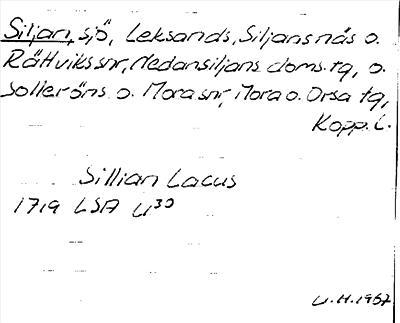 Siljan, sjö, Leksands, Siljansnäs o.
Rättviks snr, Nedansiljans doms. tg, o.
Solleröns o. Mora snr, Mora o. Orsa tg,
Kopp. l.
Sillian Lacus
1719 LSA U30
U.H. 1967